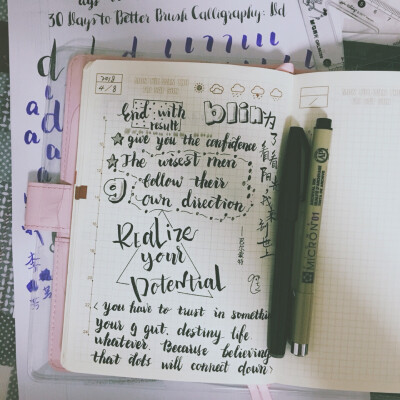 30 Days to Better Brush Calligraphy:
2018
4/8
End with
result
blin
☆ give you the confidence
☆ The wisest men
follow their
own direction
REalize
your
Potential
you have to trust in somethin
your g gut, destiny, life
whatever. Because believing
that dots will connect down
为了看看阳光,我来到世上
MICRON 01